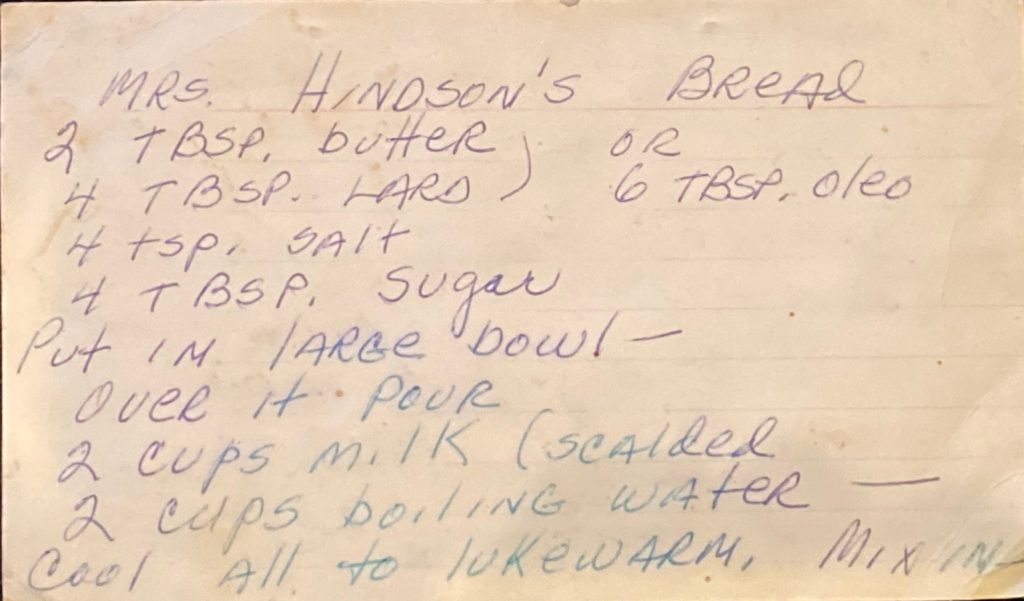 MRS. HINDSON'S BREAD
2 TBSP. butteR ) OR
4 TBSP. LARD ) 6 TBSP. oleo
4 tsp. SALT
4 TBSP. Sugar
Put IN lARGe bowl —
OveR it pouR
2 cups milk (scAlded
2 cups boiling wAteR —
Cool All to lukewARM. Mix IN —